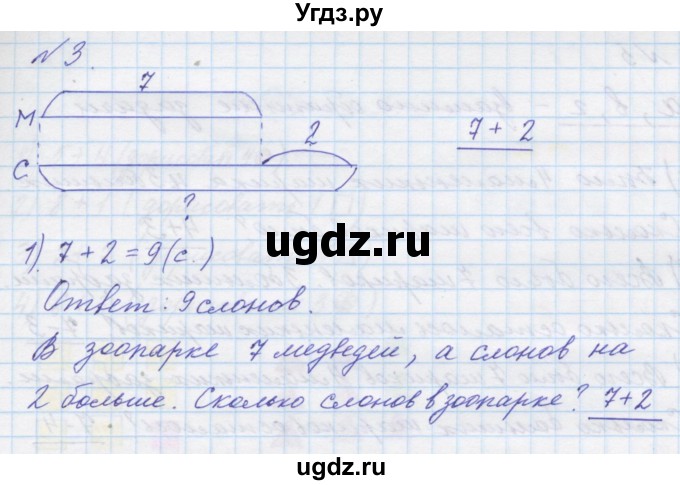 Угдз.ру
№3.
7
М
2
7 + 2
С
?
1) 7 + 2 = 9 (с.)
Ответ: 9 слонов.
В зоопарке 7 медведей, а слонов на
2 больше. Сколько слонов в зоопарке? 7+2
ugdz.ru
ugdz.ru
ugdz.ru